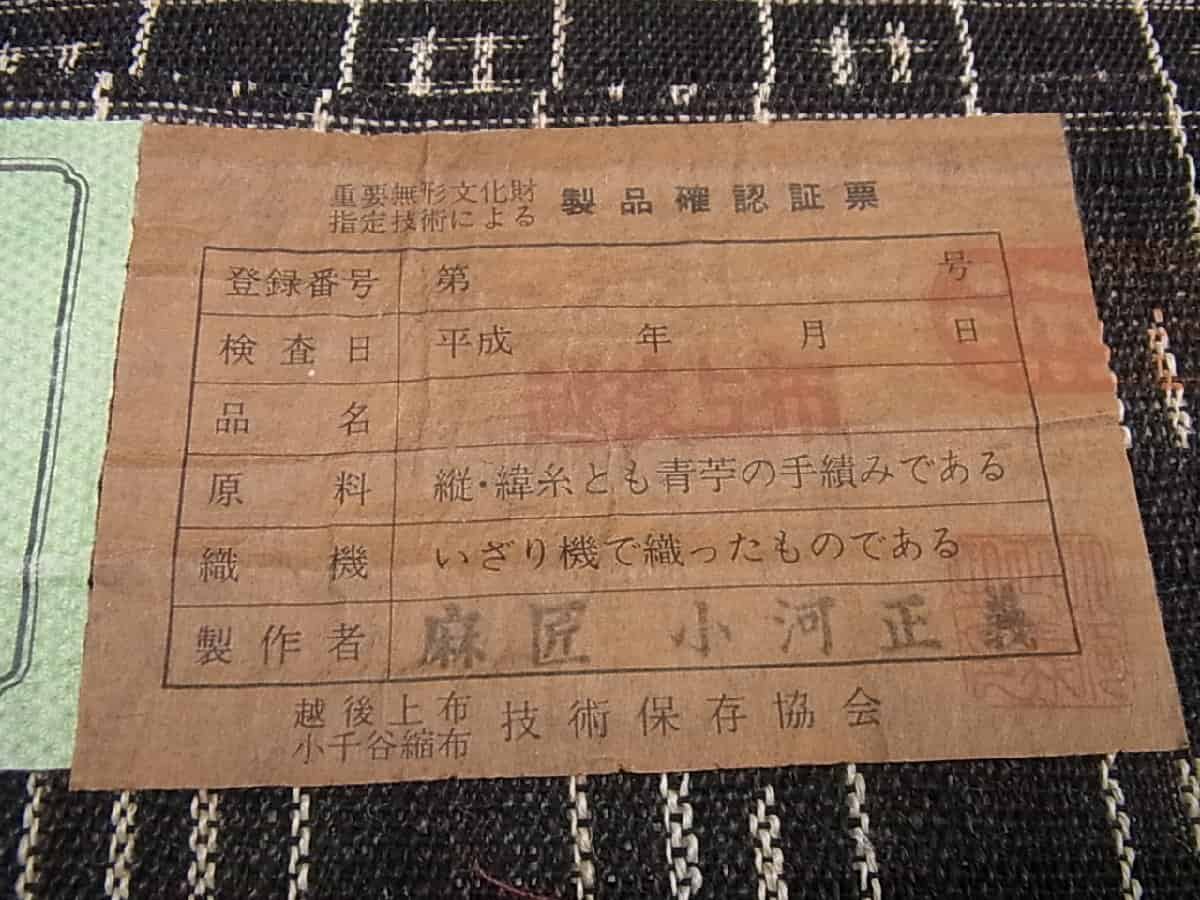 重要無形文化財
指定技術による
製品確認証票
登録番号 第 号
検査日 平成 年 月 日
品名 越後上布
原料 縦・緯糸とも青苧の手績みである
織機 いざり機で織ったものである
製作者 麻匠 小河正義
越後上布
小千谷縮布
技術保存協会